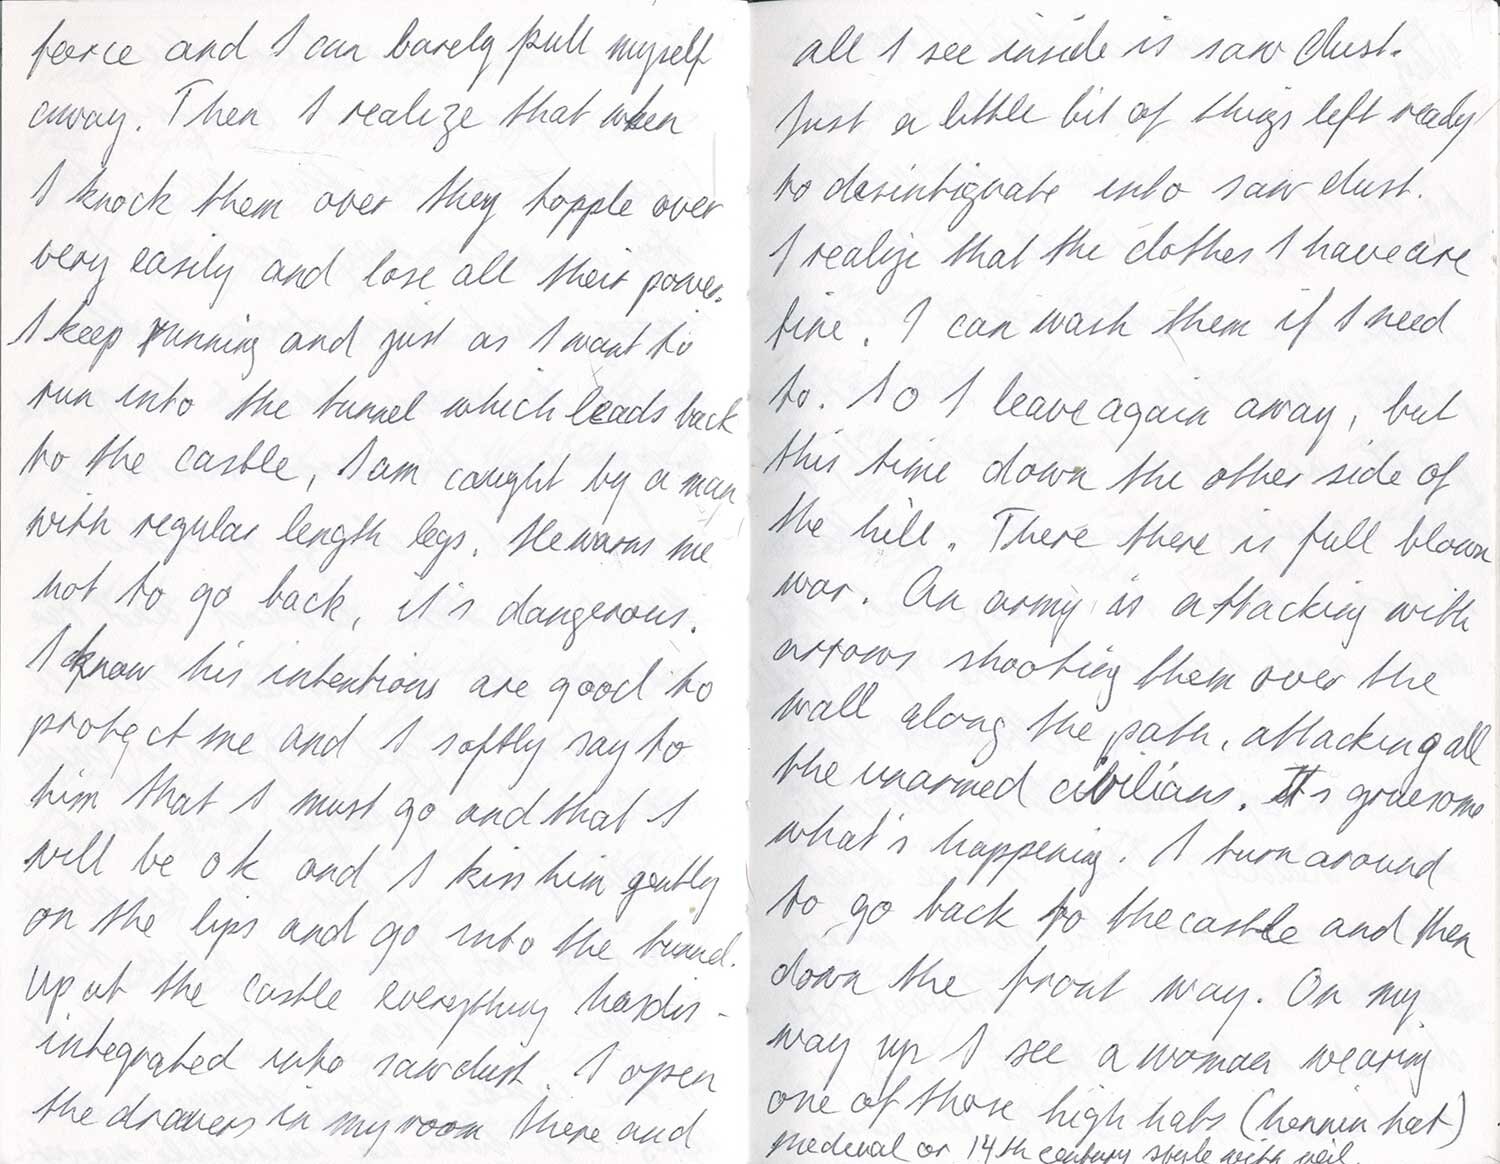 force and I can barely pull myself
away. Then I realize that when
I knock them over they topple over
very easily and lose all their power.
I keep running and just as I want to
run into the tunnel which leads back
to the castle, I am caught by a man
with regular length legs. He warns me
not to go back, it's dangerous.
I know his intentions are good to
protect me and I softly say to
him that I must go and that I
will be ok and I kiss him gently
on the lips and go into the tunnel.
Up at the castle everything has dis-
integrated into sawdust. I open
the drawers in my room there and
all I see inside is saw dust.
Just a little bit of things left ready
to desintigrate into saw dust.
I realize that the clothes I have are
fine. I can wash them if I need
to. So I leave again away, but
this time down the other side of
the hill. There there is full blown
war. An army is attacking with
arrows shooting them over the
wall along the path, attacking all
the unarmed civilians. Its gruesome
what's happening. I turn around
to go back to the castle and then
down the front way. On my
way up I see a woman wearing
one of those high hats (hennin hat)
medieval or 14th century style with veil.